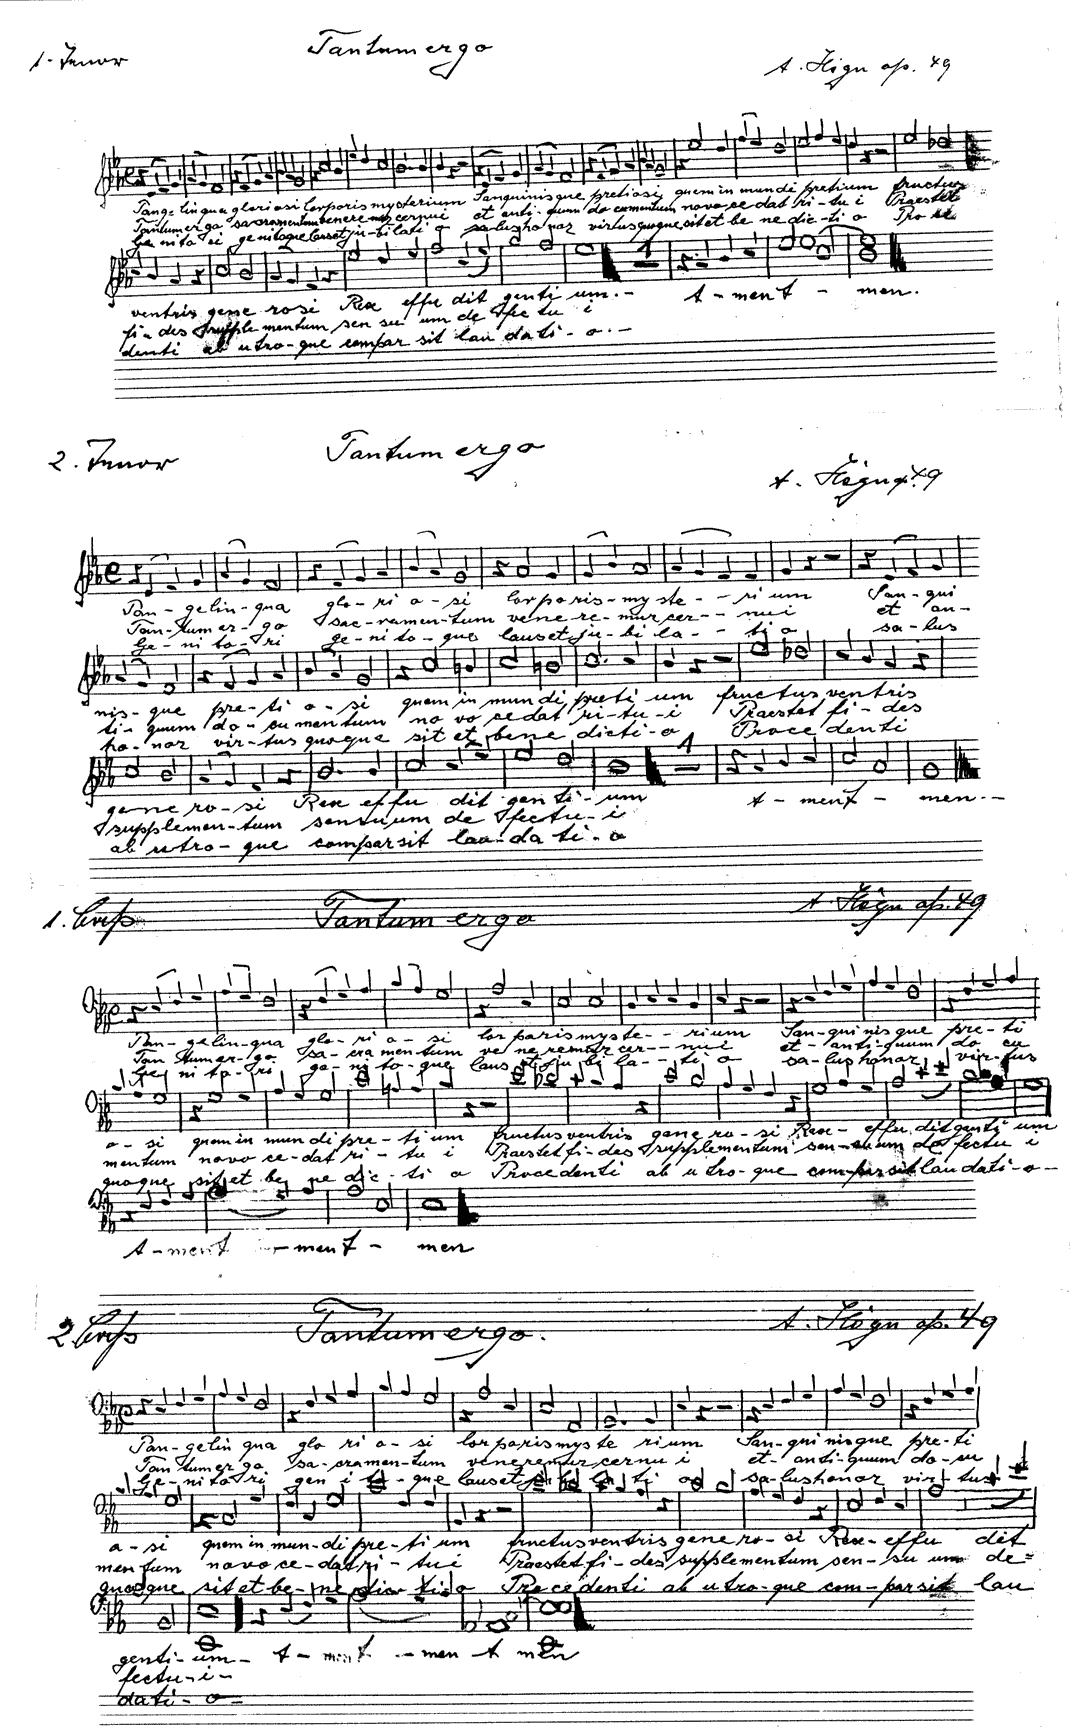 1. Tenor
Tantum ergo
A. Högn op. 49
Pange lingua gloriosi Corporis mysterium Sanguinisque pretiosi, quem in mundi pretium fructus
Tantum ergo sacramentum veneremur cernui et anti-quum documentum novo cedat ri-tu i Praestet
Ge nito ri genitoque lauset ju-bi lati o salus honor virtus quoque sit et be ne dic-ti o Pro ce
ventris gene rosi Rex effu dit genti um.- A-men A - men.
fi-des supple mentum sen su um de fec tu i
denti ab utro-que compar sit lau da ti-o.-
2. Tenor
Tantum ergo
A. Högn op. 49
Pan-gelin-gua glo-ri o-si Corporis-myste--rium San-qui
Tan-tumer-go sac-ramen-tum vene re-mur cer--nui et an-
Ge-ni to-ri ge-nito-que lauset ju-bi la--ti o sa-lus
nis-que pre-ti o-si quem in mundi preti um fructus ventris
ti-quum do-cumentum no vo cedat ri-tu-i Praestet fi-des
ho-nor vir-tus quoque sit et bene dicti-o Proce denti
gene ro-si Rex effu dit genti-um A-men A - men--
supplemen-tum sensuum de fectu-i
ab utro-que comparsit lau-da ti-o
1. Bass
Tantum ergo
A. Högn op. 49
Pan-gelin-gua glo-ri o-si Cor poris myste--rium San-qui nis que pre-ti
Tan tumer-go sa-cra mentum ve ne remur cer--nui et-anti-quum do cu
Ge ni to-ri ge-ni to-que laus et ju bi la--ti o sa-lus honor vir-tus
o-si quem in mun di pre-ti um fructus ventris gene ro-si Rex-effu dit genti um
mentum novo ce-dat ri-tu i Praestet fi-des supplementum sen-suum de fectu i
quoque sit et be ne dic-ti o Procedenti ab utro-que com-parsit lau dati-o-
A-men A-men A- men
2. Bass
Tantum ergo.
A. Högn op. 49
Pan-gelin gua glo ri o-si Cor poris myste rium San-qui nisque pre-ti
Tan tumer go sa-cramen-tum veneremur cernu i et-anti-quum do-cu
Ge-nito ri gen i to-que lauset ju bi la ti o sa-lus honor vir tus
o-si quem in mun-di pre-ti um fructus ventris gene ro-si Rex-effu dit
mentum novo ce-dat ri-tui Praestet fi-des supplementum sen-su um de=
quoque sit et be-ne dic ti o Procedenti ab utro-que com-parsit lau
genti-um- A-men A -men A men
fectu-i-
dati-o-